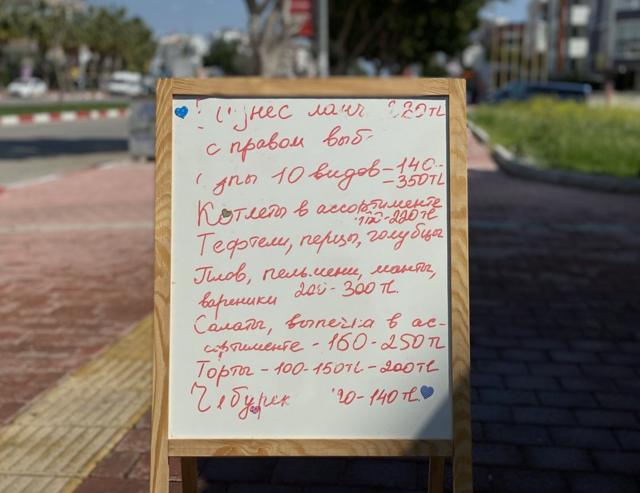 ланч
с правом
10 видов - 140 -
- 350 TL
Котлеты в ассортименте
- 220 TL
Тефтели, перцы, голубцы
Плов, пельмени, манты,
вареники 200 - 300 TL.
Салаты, выпечка в ас-
сортименте - 160 - 250 TL
Торты - 100 - 150 TL - 200 TL
Чебурек - 140 TL